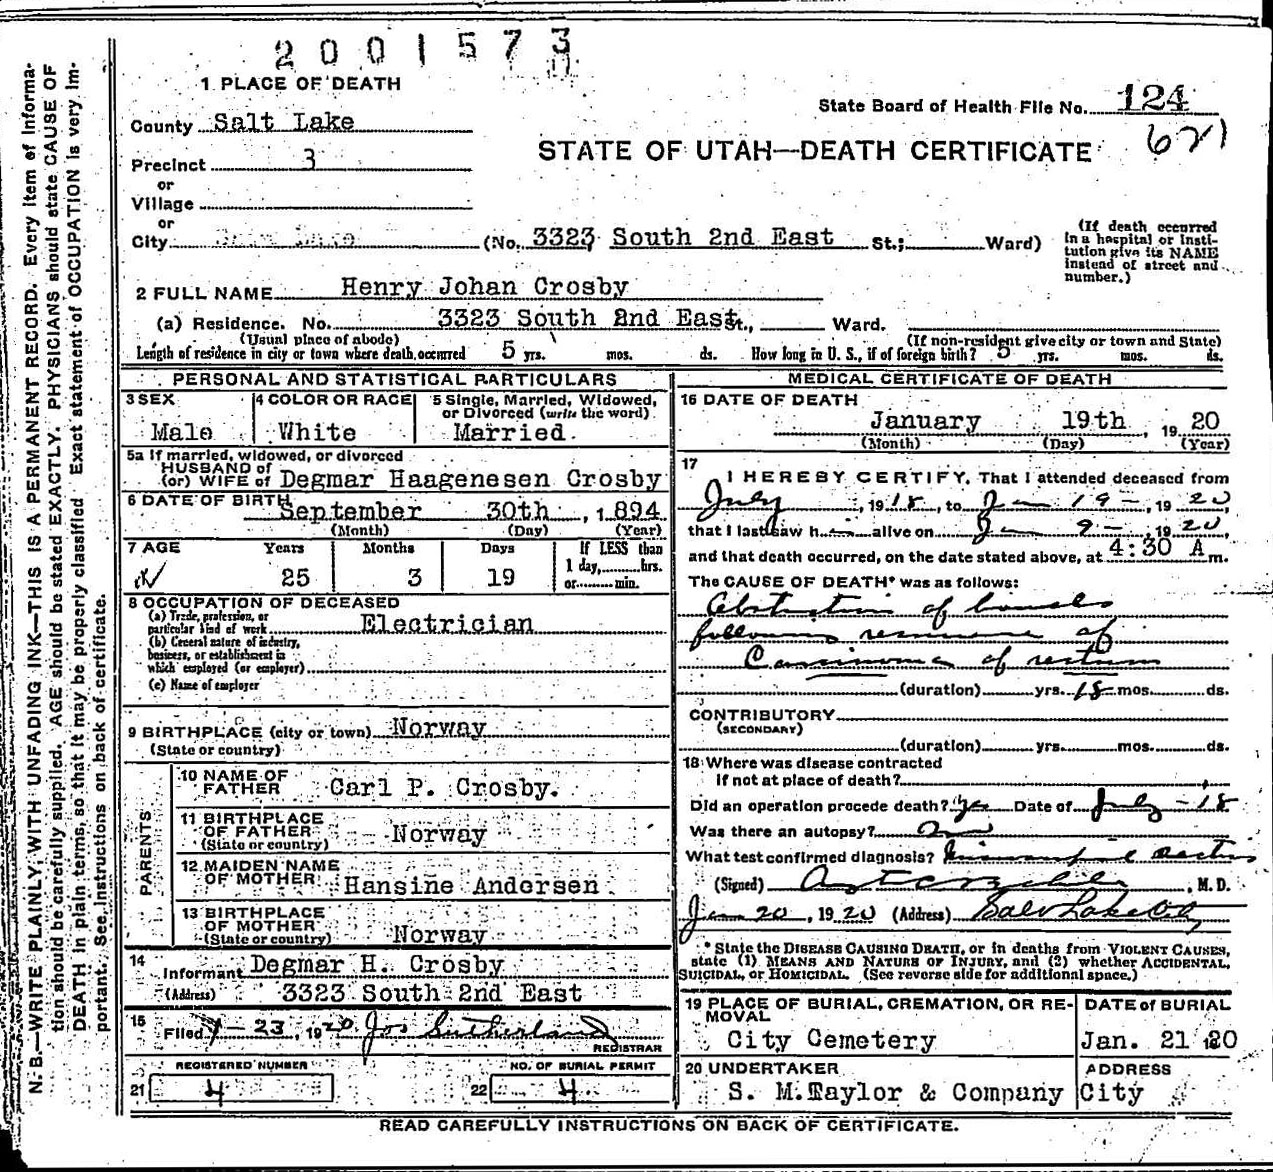 2001573
1 PLACE OF DEATH
State Board of Health File No. 124
County Salt Lake
621
Precinct 3
STATE OF UTAH—DEATH CERTIFICATE
or
Village
or
City (No. 3323 South 2nd East St.; Ward)
(If death occurred in a hospital or institution give its NAME instead of street and number.)
2 FULL NAME Henry Johan Crosby
(a) Residence. No. 3323 South 2nd East St., Ward.
(Usual place of abode) (If non-resident give city or town and State)
Length of residence in city or town where death occurred 5 yrs. mos. ds. How long in U. S., if of foreign birth? 5 yrs. mos. ds.
PERSONAL AND STATISTICAL PARTICULARS
3 SEX
Male
4 COLOR OR RACE
White
5 Single, Married, Widowed, or Divorced (write the word)
Married.
5a If married, widowed, or divorced
HUSBAND of
(or) WIFE of Degmar Haagenesen Crosby
6 DATE OF BIRTH
September 30th, 1894
(Month) (Day) (Year)
7 AGE Years Months Days If LESS than
1 day, hrs.
25 3 19 or min.
8 OCCUPATION OF DECEASED
(a) Trade, profession, or
particular kind of work Electrician
(b) General nature of industry,
business, or establishment in
which employed (or employer)
(c) Name of employer
9 BIRTHPLACE (city or town) Norway
(State or country)
PARENTS
10 NAME OF
FATHER Carl P. Crosby.
11 BIRTHPLACE
OF FATHER Norway
(State or country)
12 MAIDEN NAME
OF MOTHER Hansine Andersen
13 BIRTHPLACE
OF MOTHER
(State or country) Norway
14
Informant Degmar H. Crosby
(Address) 3323 South 2nd East
15
Filed 1-23, 1920 Jos Sutherland
REGISTRAR
REGISTERED NUMBER NO. OF BURIAL PERMIT
21 4 22 4
MEDICAL CERTIFICATE OF DEATH
16 DATE OF DEATH
January 19th, 1920
(Month) (Day) (Year)
17
I HEREBY CERTIFY, That I attended deceased from
July, 1918, to Jan 19-, 1920,
that I last saw him alive on Jan 9-, 1920,
and that death occurred, on the date stated above, at 4:30 A m.
The CAUSE OF DEATH* was as follows:
Obstruction of bowels
following resumme of
Carcinoma of rectum
(duration) yrs. 18 mos. ds.
CONTRIBUTORY
(SECONDARY)
(duration) yrs. mos. ds.
18 Where was disease contracted
if not at place of death?
Did an operation precede death? Yes Date of July -18
Was there an autopsy? No
What test confirmed diagnosis?
(Signed) , M.D.
Jan 20, 1920 (Address) Salt Lake City
* State the DISEASE CAUSING DEATH, or in deaths from VIOLENT CAUSES,
state (1) MEANS AND NATURE OF INJURY, and (2) whether ACCIDENTAL,
SUICIDAL, or HOMICIDAL. (See reverse side for additional space.)
19 PLACE OF BURIAL, CREMATION, OR REMOVAL
City Cemetery
DATE of BURIAL
Jan. 21 1920
20 UNDERTAKER
S. M. Taylor & Company
ADDRESS
City
READ CAREFULLY INSTRUCTIONS ON BACK OF CERTIFICATE.
N. B.—WRITE PLAINLY, WITH UNFADING INK—THIS IS A PERMANENT RECORD. Every item of informa-
tion should be carefully supplied. AGE should be stated EXACTLY. PHYSICIANS should state CAUSE OF
DEATH in plain terms, so that it may be properly classified. Exact statement of OCCUPATION is very im-
portant. See instructions on back of certificate.